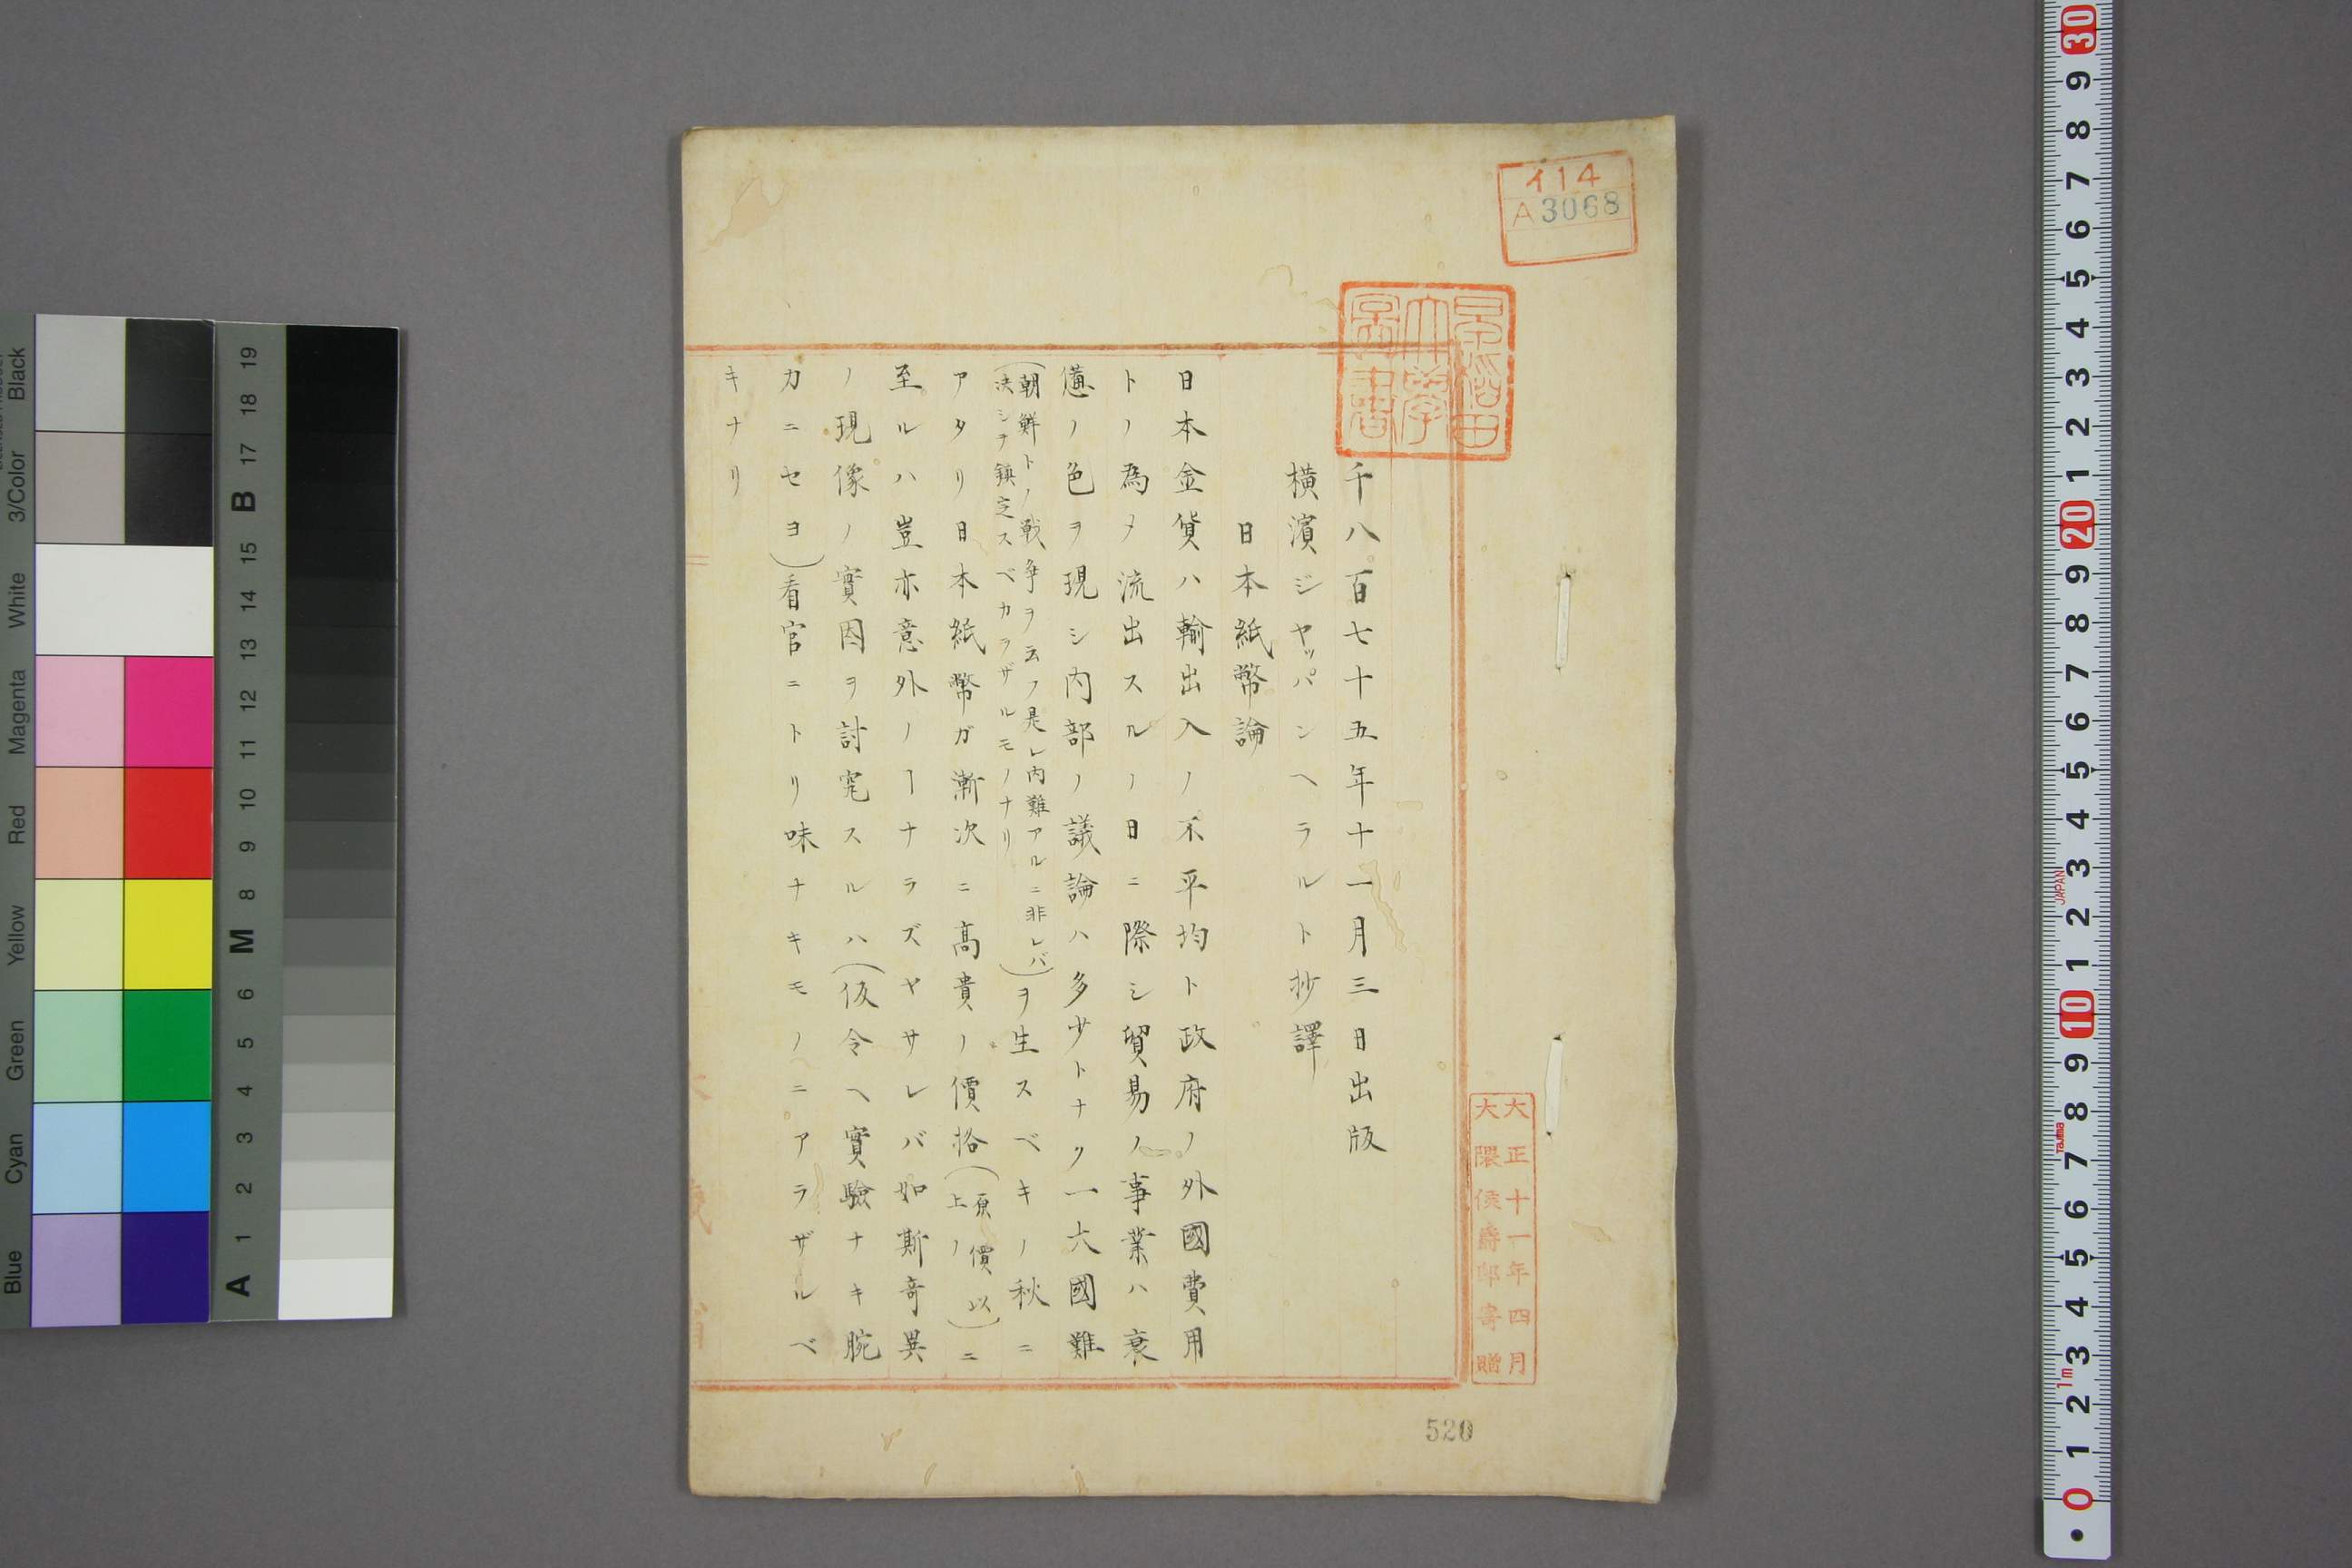 イ14
A3068
早稲田
大學
圖書
千八百七十五年十一月三日出版
横濱ジヤッパンヘラルト抄譯
日本紙幣論
日本金貨ハ輸出入ノ不平均ト政府ノ外國費用
トノ為メ流出スルノ日ニ際シ貿易ノ事業ハ衰
憊ノ色ヲ現シ内部ノ議論ハ多少トナク一大國難
(朝鮮トノ戦争ヲ云フ是レ内難アルニ非レバ
決シヲ鎮定スベカラザルモノナリ)ヲ生スベキノ秋ニ
アタリ日本紙幣ガ漸次ニ高貴ノ價格(原價以
上ノ)ニ
至ルハ豈亦意外ノ一ナラズヤサレバ如斯奇異
ノ現像ノ實因ヲ討究スルハ(仮令ヘ實驗ナキ腕
カニセヨ)看官ニトリ味ナキモノニアラザルベ
キナリ
大正十一年四月
大隈侯爵邸寄贈
520
Black
3/Color
White
Magenta
Red
Yellow
Green
Cyan
Blue
A 1 2 3 4 5 6 M 8 9 10 11 12 13 14 15 B 17 18 19
0 1 2 3 4 5 6 7 8 9 10 1 2 3 4 5 6 7 8 9 20 1 2 3 4 5 6 7 8 9 30
1m
Tajima
JAPAN